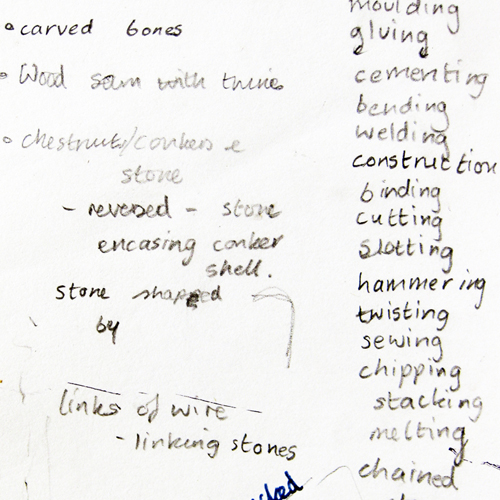 • carved bones
• Wood sewn with twine
• chestnuts/conkers e
stone
- reversed - stone
encasing conker
shell.
stone shapped
by
links of wire
- linking stones
moulding
gluing
cementing
bending
welding
construction
binding
cutting
slotting
hammering
twisting
sewing
chipping
stacking
melting
chained